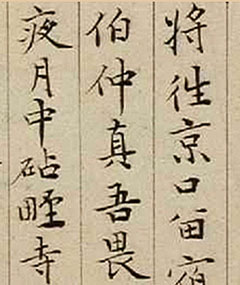 將徃京口留宿
伯仲真吾畏
夜月中砧畦寺